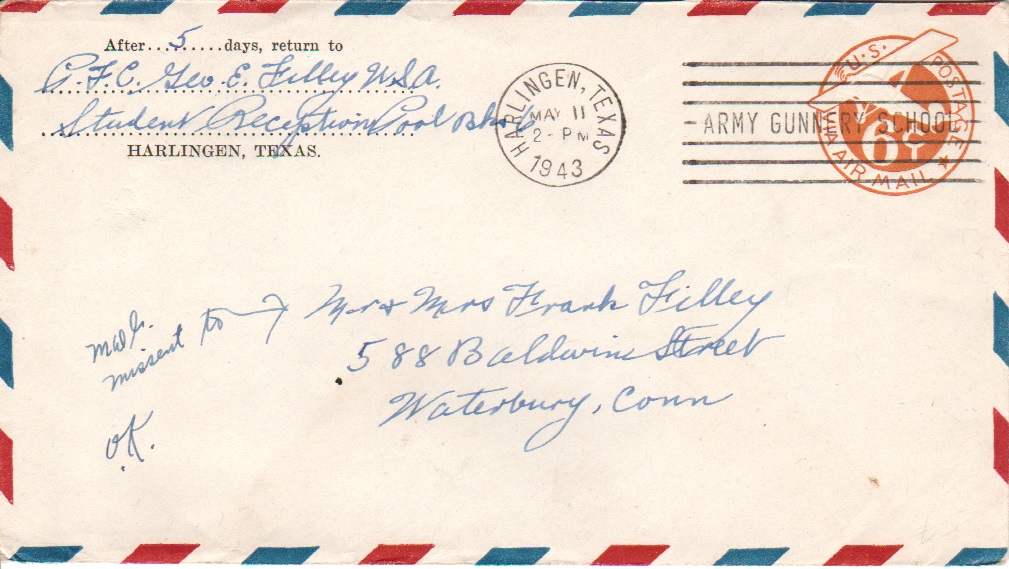 After...5......days, return to
P.F.C. Geo. E. Filley U.S.A.
Student Reception Pool
HARLINGEN, TEXAS.
HARLINGEN, TEXAS
MAY 11
2 - PM
1943
ARMY GUNNERY SCHOOL
U.S. POSTAGE
6¢
VIA AIR MAIL
Mr & Mrs Frank Filley
588 Baldwin Street
Waterbury, Conn
missent to
O.K.